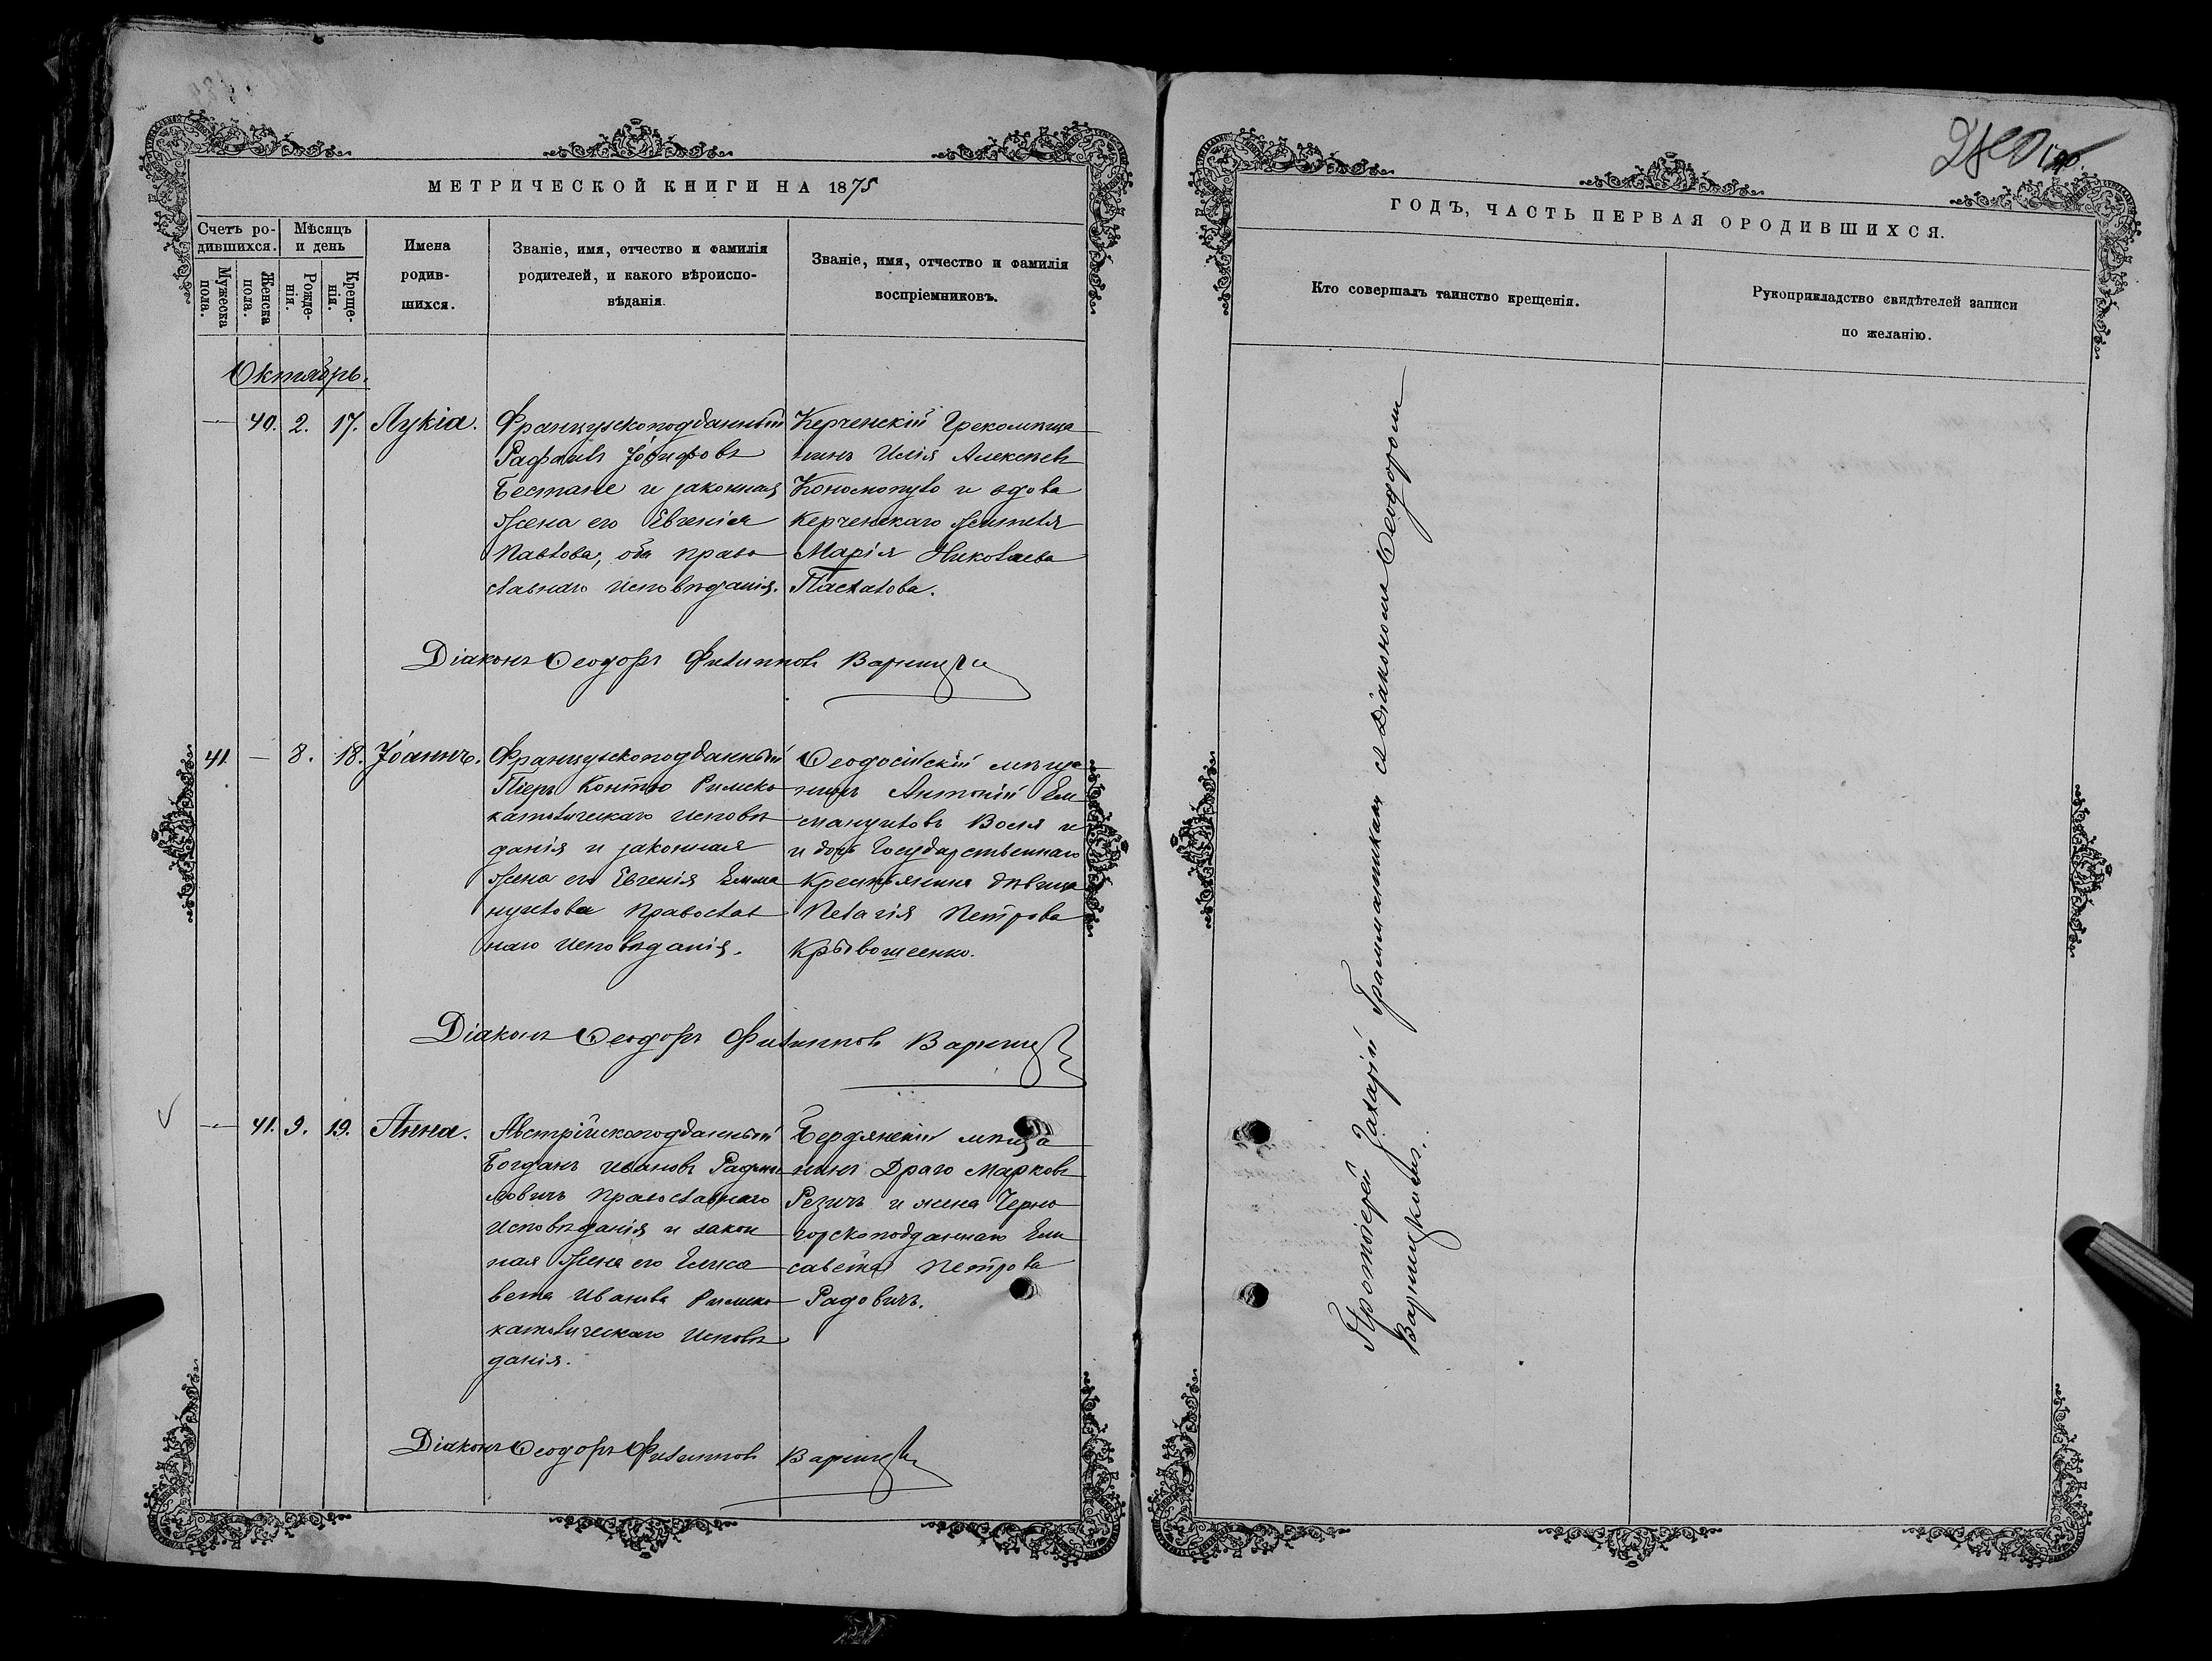 МЕТРИЧЕСКОЙ КНИГИ НА 1875
Счетъ ро-
дившихся.
Мужеска
пола.
Женска
пола.
Мѣсяцъ
и день
Рожде-
нія.
Креще-
нія.
Имена
родив-
шихся.
Званіе, имя, отчество и фамилія
родителей, и какого вѣроиспо-
вѣданія.
Званіе, имя, отчество и фамилія
воспріемниковъ.
Октябрь.
— 40. 2. 17. Лукіа.
Французскоподданный
Рафаилъ Іосифовъ
Бестане и законная
жена его Евгенія
Павлова, оба право
славнаго исповѣданія.
Керченскій Грекомѣща
нинъ Илія Алексѣевъ
Кономопуло и вдова
Керченскаго жителя
Марія Николаева
Паскалова.
Діаконъ Ѳеодоръ Филипповъ Варницкій
41. — 8. 18. Іоаннъ.
Французскоподданный
Піеръ Контьо Римско
католическаго исповѣ
данія и законная
жена его Евгенія Емма
нуилова Православ
наго исповѣданія.
Ѳеодосійскій мѣща
нинъ Антоній Ем
мануиловъ Восля и
и дочь Государственнаго
крестьянина дѣвица
Пелагія Петрова
Крывошеенко.
Діаконъ Ѳеодоръ Филипповъ Варницкій
— 41. 9. 19. Анна.
Австрійскоподданный
Богданъ Ивановъ Радми
ловичъ Православнаго
исповѣданія и закон
ная жена его Елиса
вета Иванова Римско
католическаго исповѣ
данія.
Бердянскій мѣща
нинъ Драго Марковъ
Резичъ и жена Черно
горскоподданнаго Ели
савета Петрова
Радовичъ.
Діаконъ Ѳеодоръ Филипповъ Варницкій
ГОДЪ, ЧАСТЬ ПЕРВАЯ О РОДИВШИХСЯ.
Кто совершалъ таинство крещенія.
Рукоприкладство свидѣтелей записи
по желанію.
Протоіерей Захарій Грамматикаки съ Діакономъ Ѳеодоромъ
Варницкимъ.